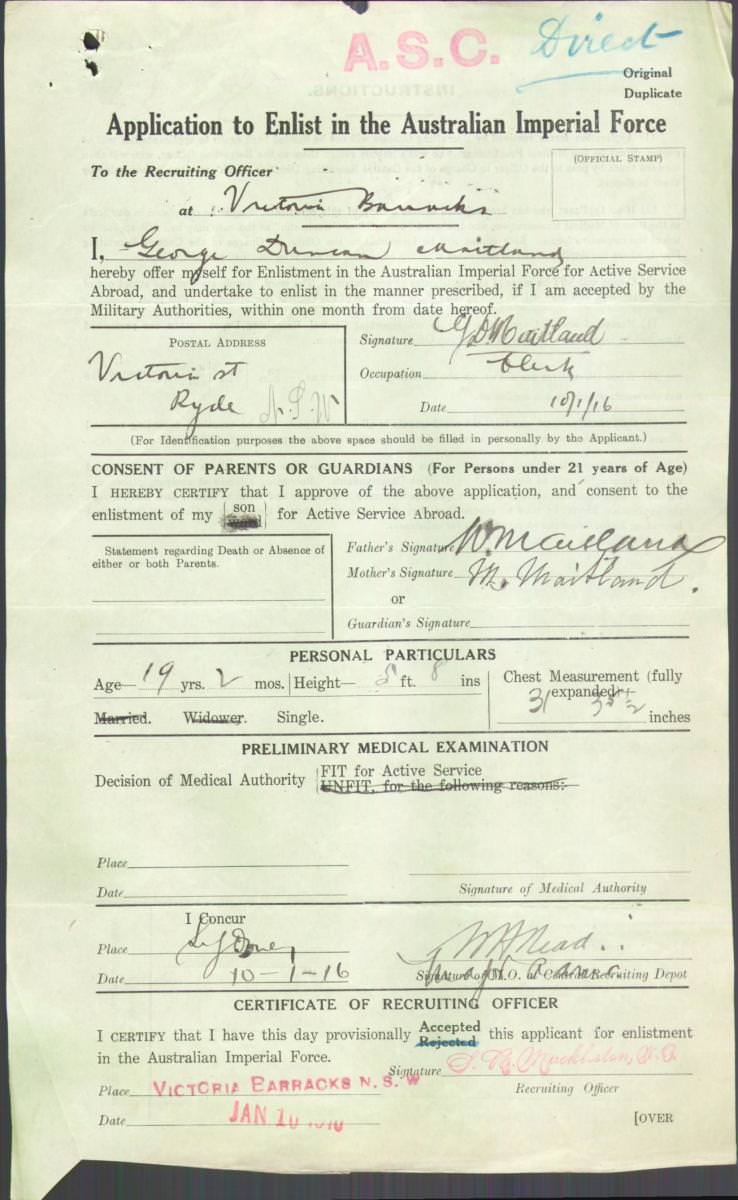 A.S.C. Direct
Original
Duplicate
Application to Enlist in the Australian Imperial Force
(OFFICIAL STAMP)
To the Recruiting Officer
at Victoria Barracks
I, George Duncan Maitland
hereby offer myself for Enlistment in the Australian Imperial Force for Active Service
Abroad, and undertake to enlist in the manner prescribed, if I am accepted by the
Military Authorities, within one month from date hereof.
POSTAL ADDRESS
Victoria st
Ryde N.S.W
Signature G D Maitland
Occupation Clerk
Date 10/1/16
(For Identification purposes the above space should be filled in personally by the Applicant.)
CONSENT OF PARENTS OR GUARDIANS (For Persons under 21 years of Age)
I HEREBY CERTIFY that I approve of the above application, and consent to the
enlistment of my son for Active Service Abroad.
Statement regarding Death or Absence of
either or both Parents.
Father's Signature W. Maitland
Mother's Signature M. Maitland.
or
Guardian's Signature
PERSONAL PARTICULARS
Age— 19 yrs. 2 mos. Height— 5 ft. 8 ins
Married. Widower. Single.
Chest Measurement (fully
expanded)—
31 inches
PRELIMINARY MEDICAL EXAMINATION
Decision of Medical Authority FIT for Active Service
UNFIT, for the following reasons:—
Place
Date
Signature of Medical Authority
I Concur
Place Sydney
Date 10-1-16
W H Read
Signature of M.O. at Central Recruiting Depot
CERTIFICATE OF RECRUITING OFFICER
I CERTIFY that I have this day provisionally Accepted this applicant for enlistment
Rejected
in the Australian Imperial Force.
Signature
Place VICTORIA BARRACKS N.S.W
Recruiting Officer
Date JAN 10 1916
[OVER